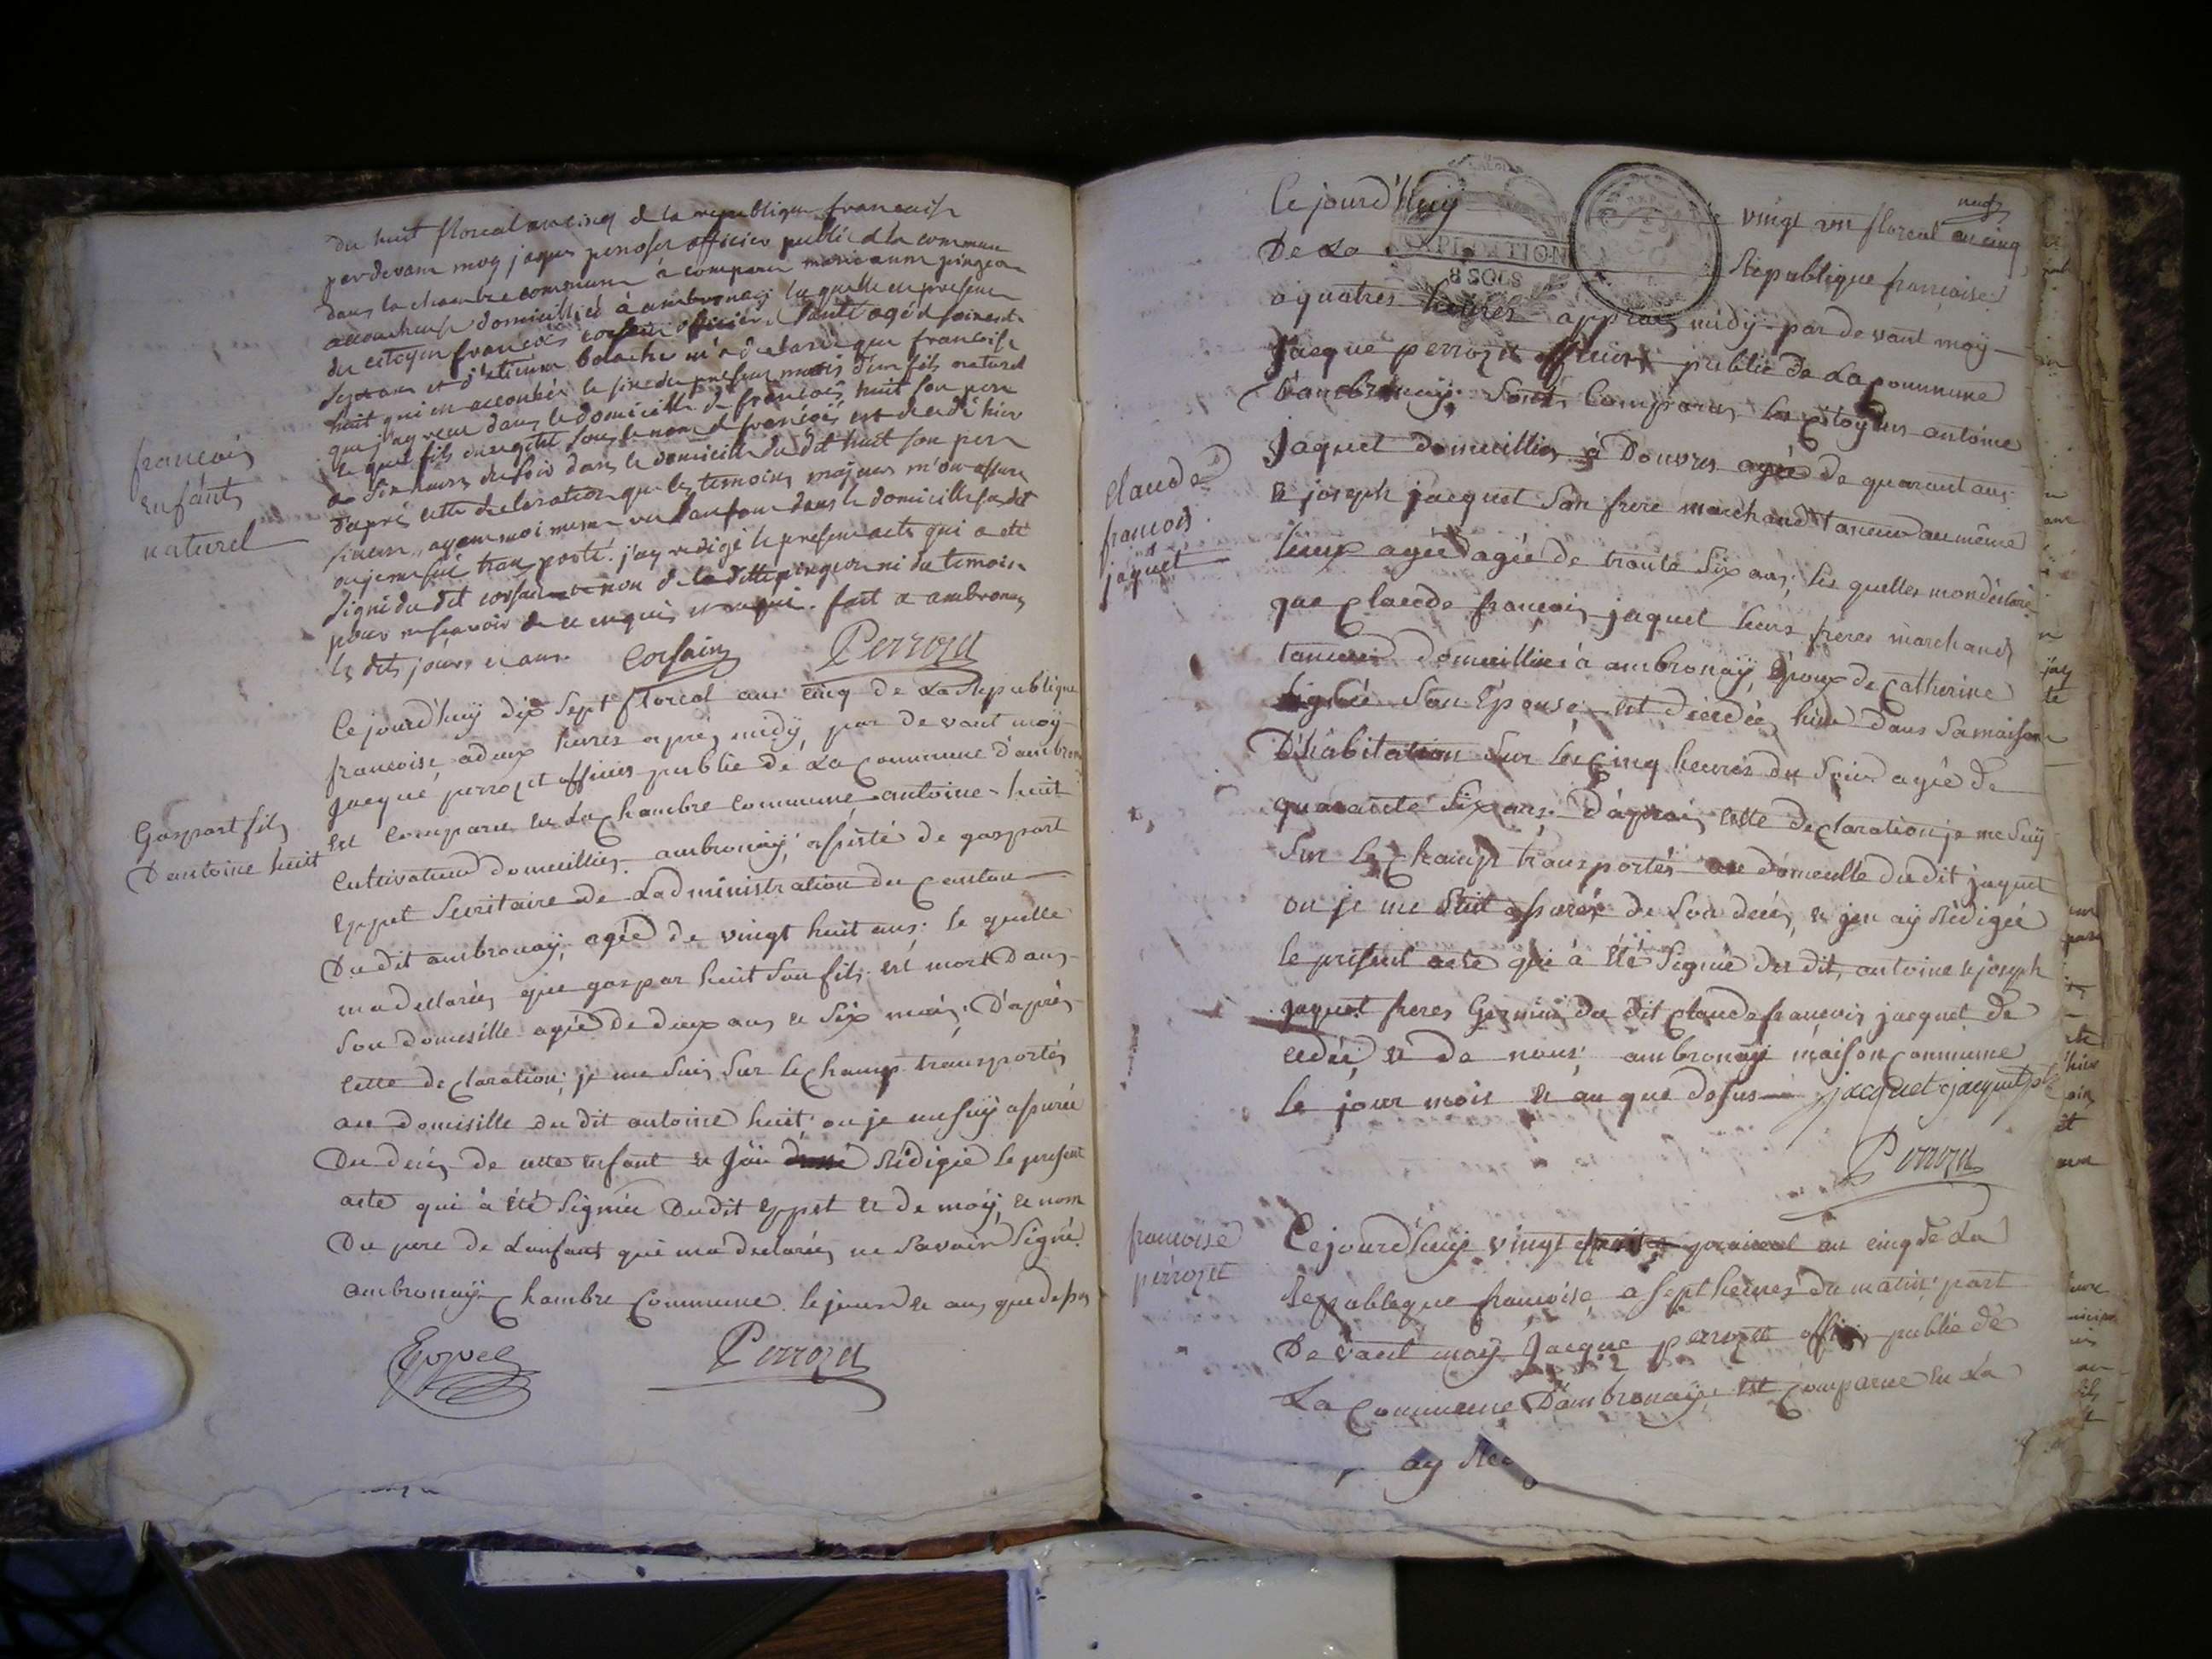 du huit floreal an cinq de la republique francaise
pardevant moy jaques perroset officier public de la commune
dans la chambre commune à comparu marieanne pingeon
accoucheuse domicilliéé à ambronay laquelle en presence
du citoyen francois corsain officier de santé agé de soixante
sept ans et d'etienne m'a declaré que francoise
huit qui en accouchée le six du present mois d'un fils naturel
que j'ay veu dans le domicille de francois huit son pere
le quel fils enregitré sous le nom de francois est decedé hier
a six heures du soir dans le domicille du dit huit son pere
d'apres cette declaration que les temoins majeurs m'ont assuré
sincere, ayant moi meme vu l'enfant dans le domicille susdit
ou je me sui transporté. j'ay redigé le present acte qui a eté
signé du dit corsain et non de la ditte pingeon ni du temoin
pour ne scavoir de ce enquis et requi. fait a ambronay
les dits jours et ans. Corsain Perrozet
francois
enfant
naturel
Cejourd'huÿ dix sept floreal ans cinq de La Republique
francoise adeux heures après midÿ par devant moÿ
Jacque perrozet officier publie de La Commune d'ambron
Est comparu en La Chambre Commune antoine huit
Cultivateur domeillier ambronaÿ, assisté de gaspart
Eyppet Secritaire de Ladministration du Canton
Du dit ambronaÿ, agée de vingt huit ans; le quelle
ma declarée que gaspar huit son fils est mort Dans
Son domesille agée de deux ans et Six mois; D'après
cette declaration; je me suis Sur le Champ transportés
au domisille du dit antoine huit, ou je me suÿ assurée
Du decés de cette enfant et Jai Rédigée le present
acte qui à été Signée Dudit Eyppet et de moÿ, et nom
Du pere de Lanfant qui ma declarée ne Savoir Signé.
ambronaÿ Chambre Commune. le jour et ans que desus
Gaspart fils
D'antoine huit
Eyppet Perrozet
neufs
Cejourd'huÿ vingt un floreal an cinq
De La Republique francaise
EXPEDITION
8 SOLS
aquatres heures apprais midÿ par devant moÿ
Jacque perrozet officiers publie de La Commune
D'ambronaÿ, Sont Comparus les Citoyens antoine
Jaquet domicillies à Douvres agée de quarant ans
et joseph jacquet Son frere marchand Taneur au même
lieux agée agée de trante Six ans; les quelles mon déclaré
que Claude françois jaquet leurs freres marchands
taneur domicilliéé à ambronaÿ, Époux de Catherine
Son Épouse est decedée hier dans Samaison
D'habitation Sur les Cinq heures du Soir agée de
quarante Six ans. D'aprais cette declaration je me Suÿ
Sur le Champ transportés au domeille du dit jaquet
ou je me Suit assurée de Son decés, et jen aÿ Rédigée
le present acte qui à été Signée des dit, antoine et joseph
Jaquet freres Germin du dit Claude francois jacquet de
cedée, et de nous; ambronaÿ maison Commune
le jour mois et an que desus jacquet jacquet
Perrozet
Claude
francois
jaquet
francoise
perrozet
Cejourd'huÿ vingt an cinq de La
Republique francoise a Sept heures du matin part
Devant moÿ Jacque perrozet publie de
La Commune D'ambronaÿ, est Comparue en La
ay